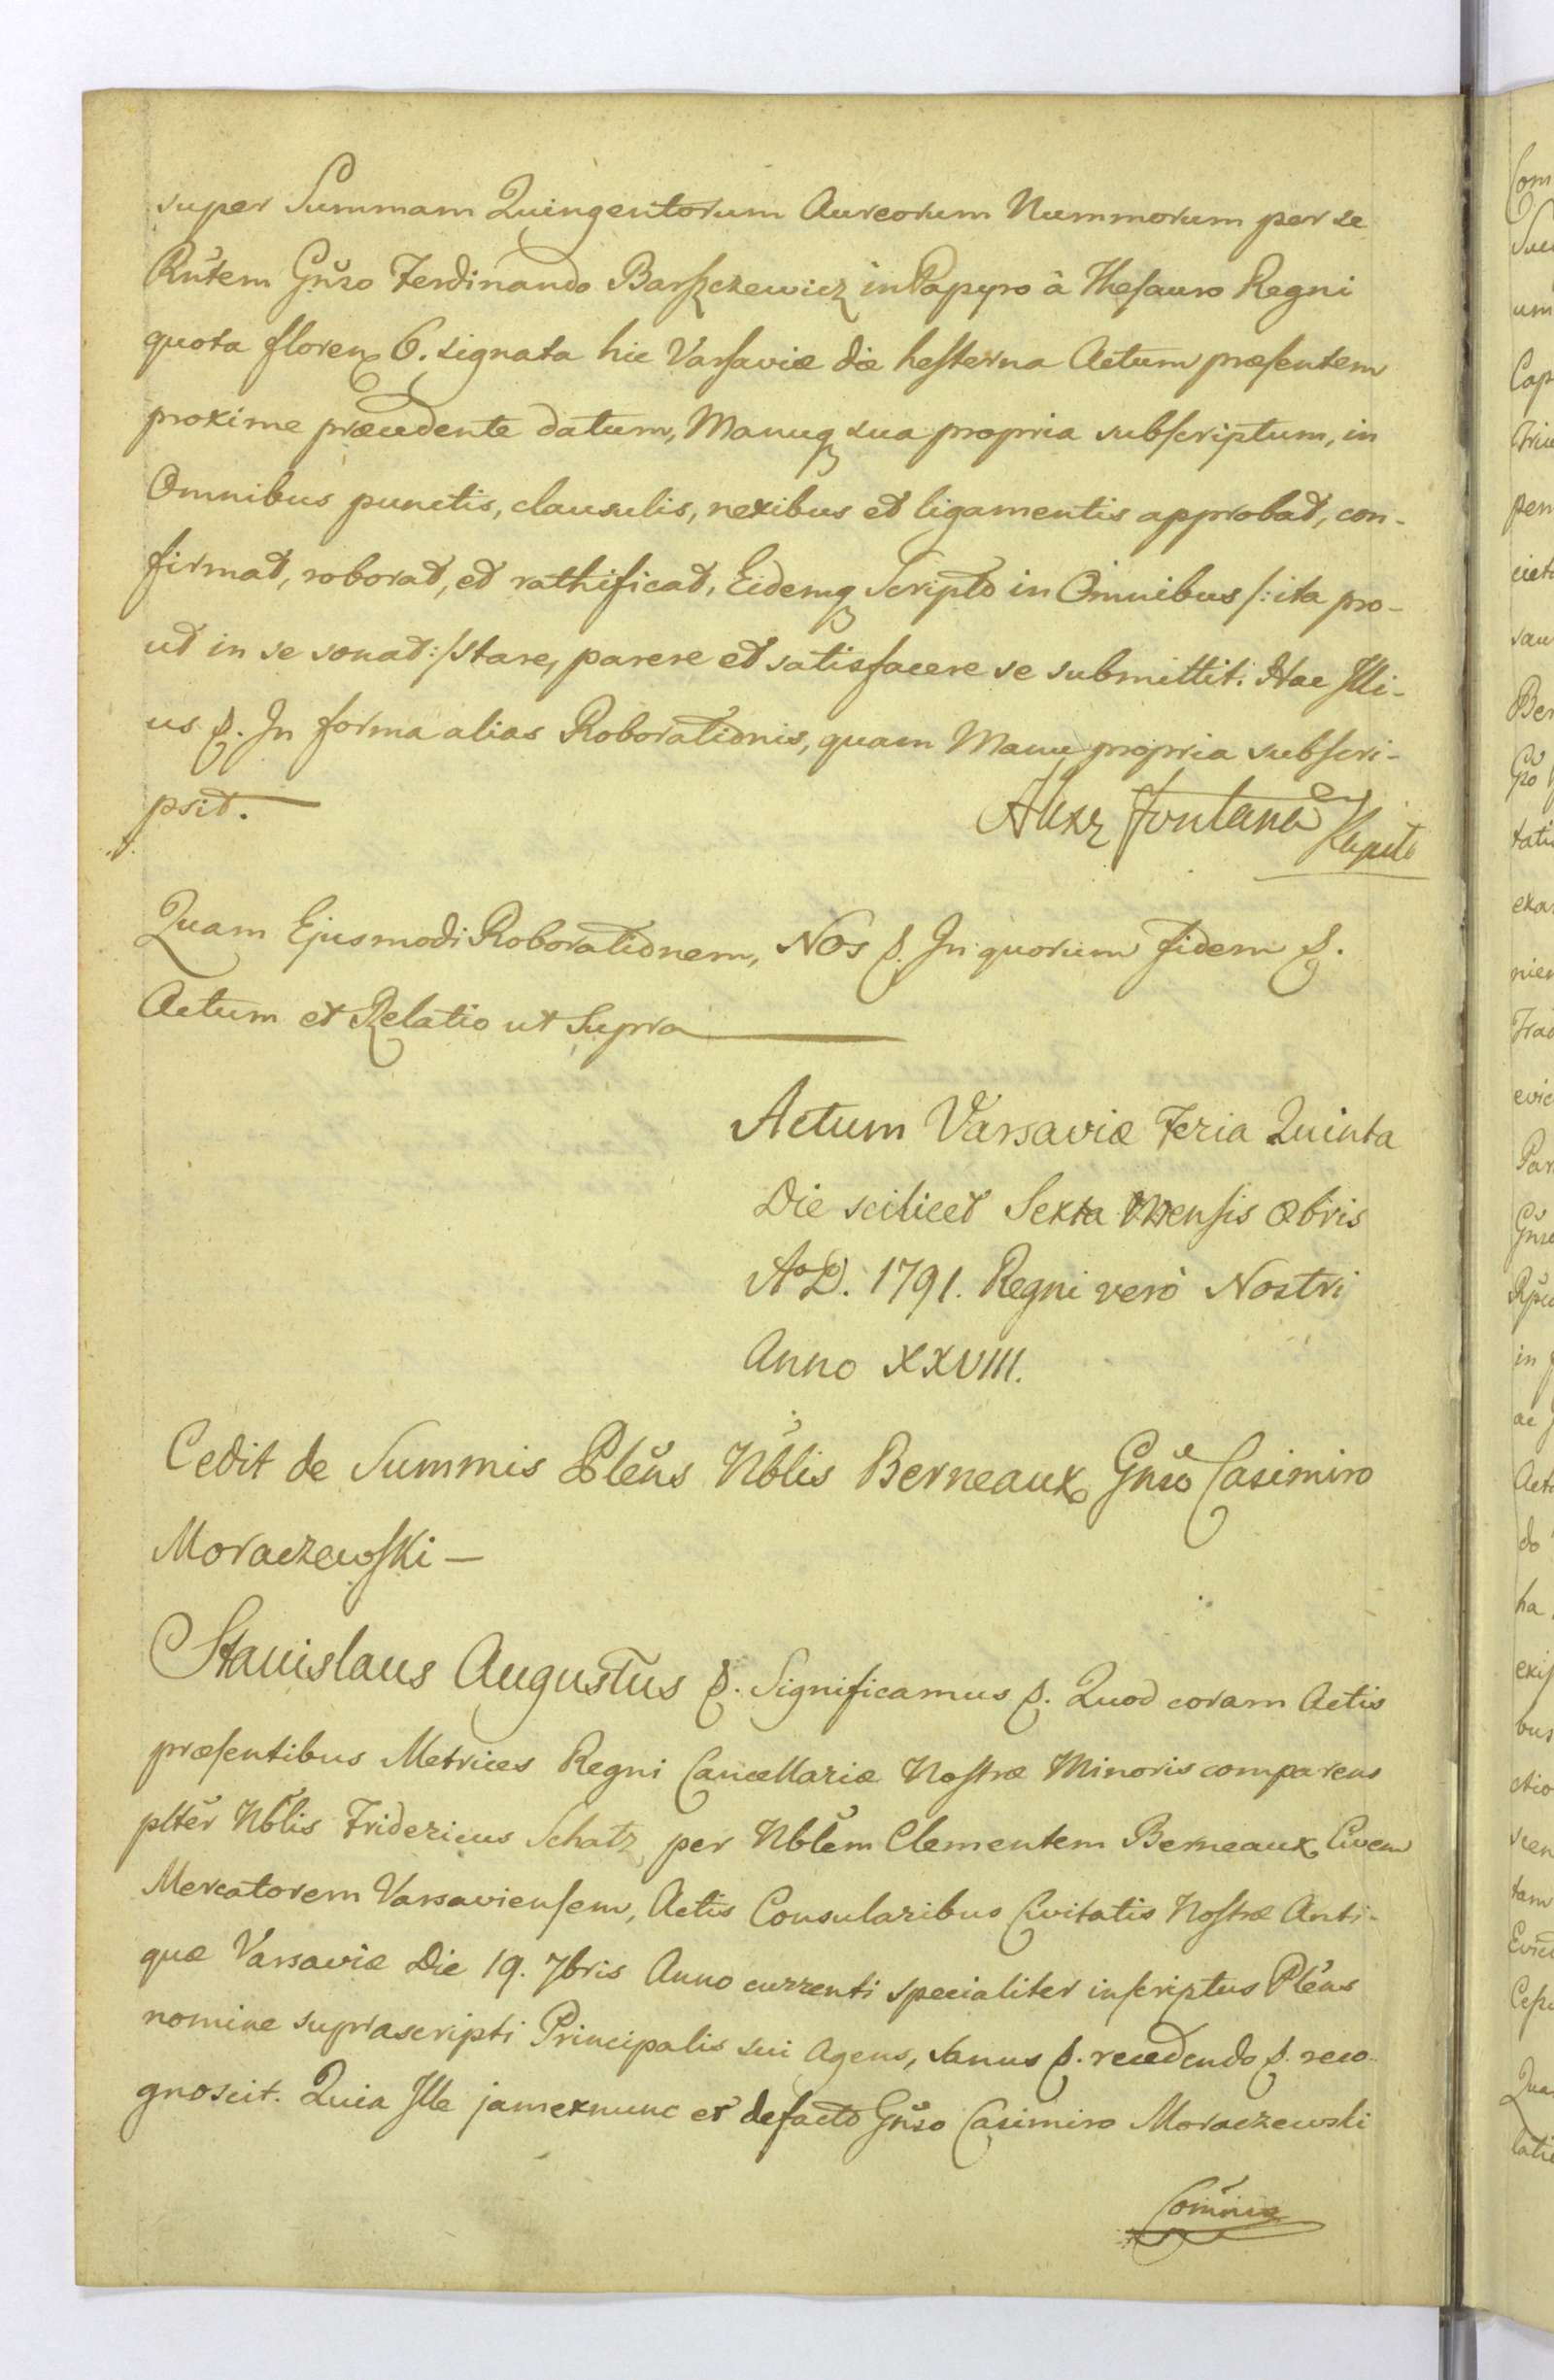 super Summam Quingentorum Aureorum Nummorum per se
Rñtem Gñso Ferdinando Barszczewicz in Papyro à Thesauro Regni
quota floren 6. signata hic Varsaviæ die hesterna Actum præsentem
proxime præcedente datum, Manuq sua propria subscriptum, in
Omnibus punctis, clausulis, nexibus et ligamentis approbat, con-
firmat, roborat, et rathificat, Eidemq Scripto in Omnibus /: ita pro-
ut in se sonat :/ stare, parere et satisfacere se submittit. Hac Illi-
us p. In forma alias Roborationis, quam Manu propria subscri-
psit.
Alexr Fontana Kapit
Quam Ejusmodi Roborationem, Nos p. In quorum fidem p.
Actum et Relatio ut Supra
Actum Varsaviæ Feria Quinta
Die scilicet Sexta Mensis Obris
Ao D. 1791. Regni verò Nostri
Anno XXVIII.
Cedit de Summis Pleñs Nblis Berneaux Gñso Casimiro
Moraczewski —
Stanislaus Augustus p. Significamus p. Quod coram Actis
præsentibus Metrices Regni Cancellariæ Nostræ Minoris comparens
plter Nblis Fridericus Schatz, per Nblem Clementem Berneaux Civem
Mercatorem Varsaviensem, Actis Consularibus Civitatis Nostræ Anti-
quæ Varsaviæ Die 19. 7bris Anno currenti specialiter inscriptus Pleñs
nomine suprascripti Principalis sui Agens, sanus p. recedendo p. reco-
gnoscit. Quia Ille jamexnunc et defacto Gñso Casimiro Moraczewski